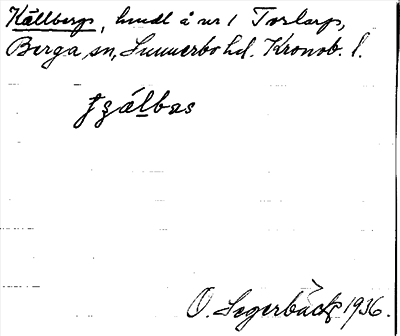 Källbergs, hmdl å nr 1 Torlarp,
Berga sn, Sunnerbo hd. Kronob. l.
O. Segerbäck 1936.